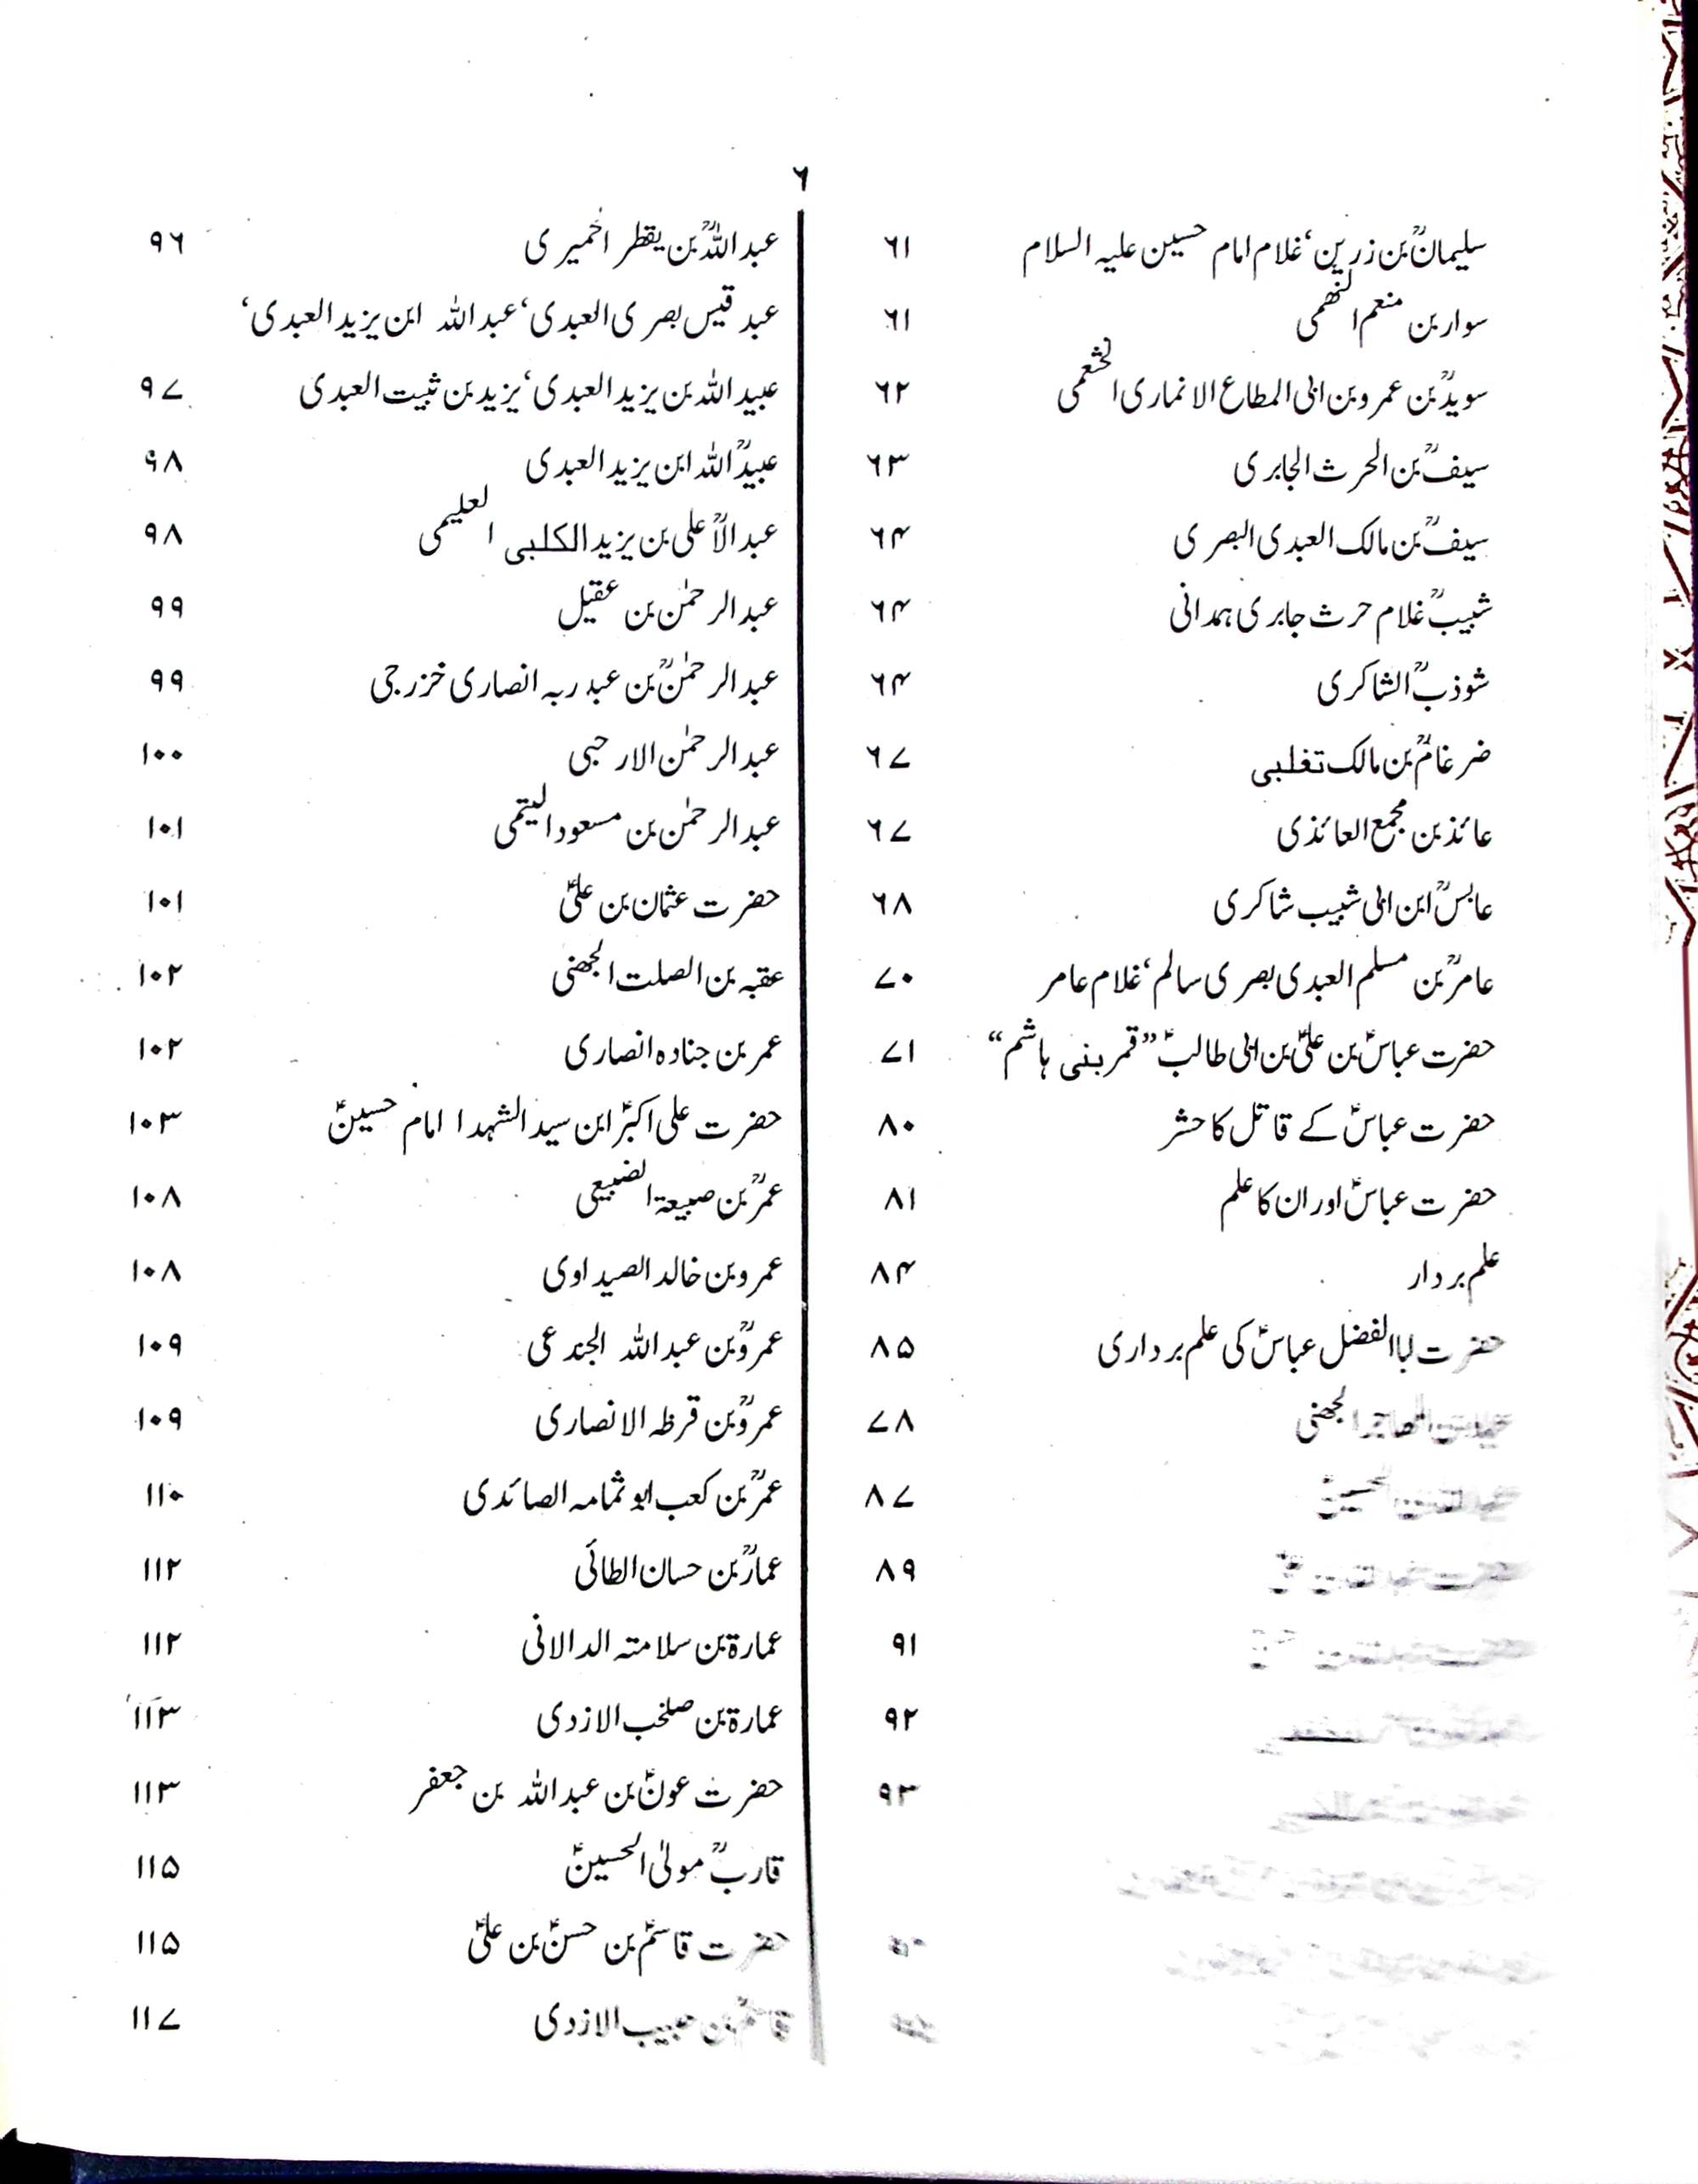 ۶
سلیمانؒ بن زرین، غلام امام حسین علیہ السلام ۶۱
سوار بن منعم النہمی ۶۱
سویدؒ بن عمرو بن ابی المطاع الانماری الخثعمی ۶۲
سیفؒ بن الحرث الجابری ۶۳
سیفؒ بن مالک العبدی البصری ۶۴
شبیبؒ غلام حرث جابری ہمدانی ۶۴
شوذبؒ الشاکری ۶۴
ضرغامؒ بن مالک تغلبی ۶۷
عائذ بن مجمع العائذی ۶۷
عابسؒ ابن ابی شبیب شاکری ۶۸
عامرؒ بن مسلم العبدی بصری سالم، غلام عامر ۷۰
حضرت عباسؑ بن علیؑ بن ابی طالبؑ ”قمر بنی ہاشم“ ۷۱
حضرت عباسؑ کے قاتل کا حشر ۸۰
حضرت عباسؑ اور ان کا علم ۸۱
علم بردار ۸۴
حضرت ابا الفضل عباسؑ کی علم برداری ۸۵
الجہنی ۷۸
۸۷
۸۹
۹۱
۹۲
۹۳
عبداللہؒ بن یقطر الحمیری ۹۶
عبد قیس بصری العبدی، عبداللہ ابن یزید العبدی،
عبید اللہ بن یزید العبدی، یزید بن ثبیت العبدی ۹۷
عبیدؒ اللہ ابن یزید العبدی ۹۸
عبد الاؒعلی بن یزید الکلبی العلیمی ۹۸
عبد الرحمٰن بن عقیل ۹۹
عبد الرحمٰنؒ بن عبد ربہ انصاری خزرجی ۹۹
عبد الرحمٰن الارحبی ۱۰۰
عبد الرحمٰن بن مسعود التیمی ۱۰۱
حضرت عثمان بن علیؑ ۱۰۱
عقبہ بن الصلت الجہنی ۱۰۲
عمر بن جنادہ انصاری ۱۰۲
حضرت علی اکبرؑ ابن سید الشہدا امام حسینؑ ۱۰۳
عمرؒ بن صبیعۃ الضبیعی ۱۰۸
عمرو بن خالد الصیداوی ۱۰۸
عمروؒ بن عبداللہ الجندعی ۱۰۹
عمروؒ بن قرظہ الانصاری ۱۰۹
عمرؒ بن کعب ابو ثمامہ الصائدی ۱۱۰
عمارؒ بن حسان الطائی ۱۱۲
عمارۃ بن سلامتہ الدالانی ۱۱۲
عمارۃ بن صلخب الازدی ۱۱۳
حضرت عونؑ بن عبداللہ بن جعفر ۱۱۳
قاربؒ مولیٰ الحسینؑ ۱۱۵
حضرت قاسمؑ بن حسنؑ بن علیؑ ۱۱۵
بن حبیب الازدی ۱۱۷